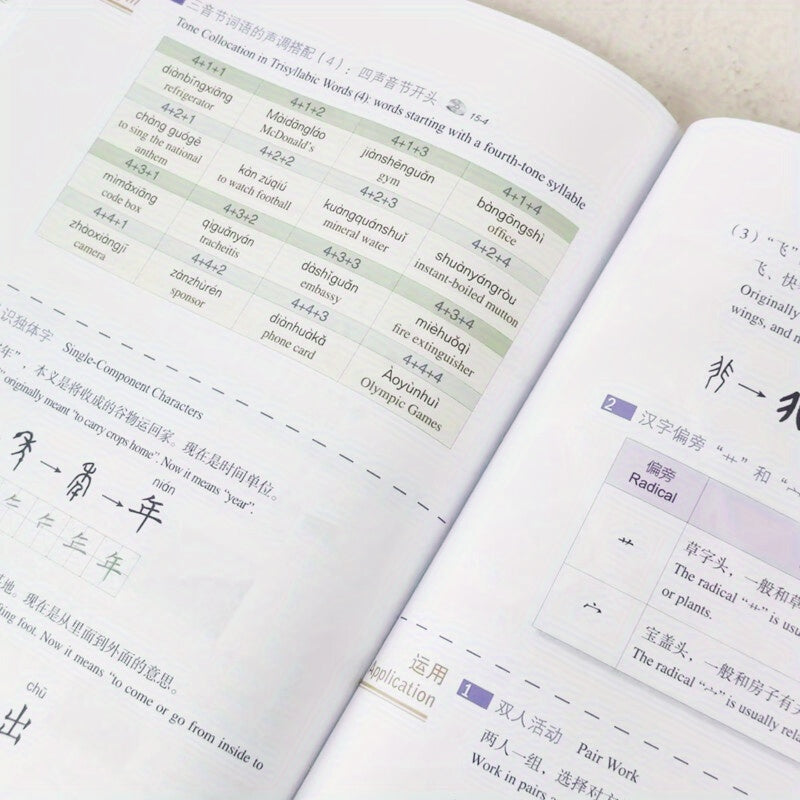 三音节词语的声调搭配（4）：四声音节开头 15-4
Tone Collocation in Trisyllabic Words (4): words starting with a fourth-tone syllable
4+1+1
4+1+2
4+1+3
4+1+4
diànbīngxiāng
Màidāngláo
jiànshēnguǎn
bàngōngshì
refrigerator
McDonald's
gym
office
4+2+1
4+2+2
4+2+3
4+2+4
chàng guógē
kàn zúqiú
kuàngquánshuǐ
shuànyángròu
to sing the national
to watch football
mineral water
instant-boiled mutton
anthem
4+3+1
4+3+2
4+3+3
4+3+4
mìmǎxiāng
qìguǎnyán
dàshǐguǎn
mièhuǒqì
code box
tracheitis
embassy
fire extinguisher
4+4+1
4+4+2
4+4+3
4+4+4
zhàoxiàngjī
zànzhùrén
diànhuàkǎ
Àoyùnhuì
camera
sponsor
phone card
Olympic Games
识独体字 Single-Component Characters
年”，本义是将收成的谷物运回家。现在是时间单位。
” originally meant “to carry crops home”. Now it means “year”.
nián
年
年
地。现在是从里面到外面的意思。
foot. Now it means “to come or go from inside to
chū
出
（3）“飞”
飞、快
Originally
wings, and
2 汉字偏旁 “艹” 和 “宀
偏旁
Radical
艹
草字头，一般和草
The radical “艹” is usu
or plants.
宀
宝盖头，一般和房子有关
The radical “宀” is usually rela
运用
Application
1 双人活动 Pair Work
两人一组，选择对方
Work in pairs